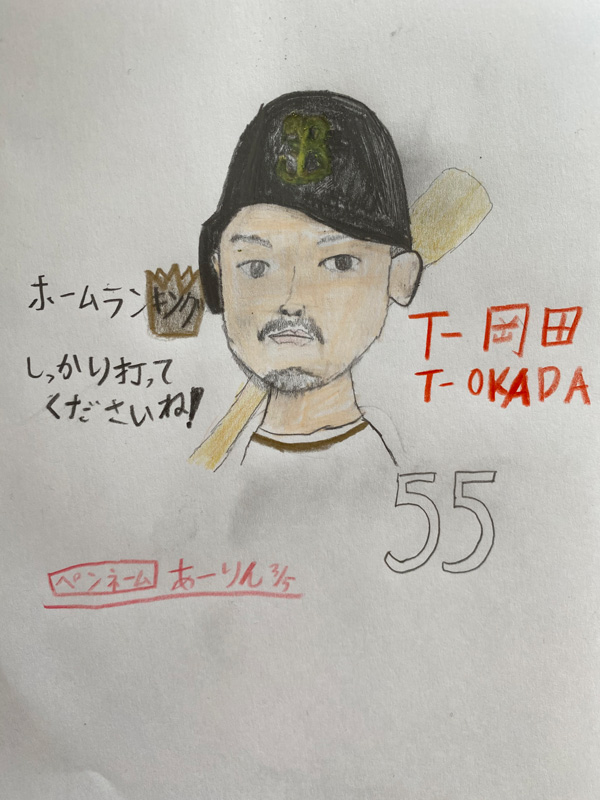 B
ホームランキング
しっかり打って
くださいね!
T-岡田
T-OKADA
55
ペンネーム あーりん 3/5